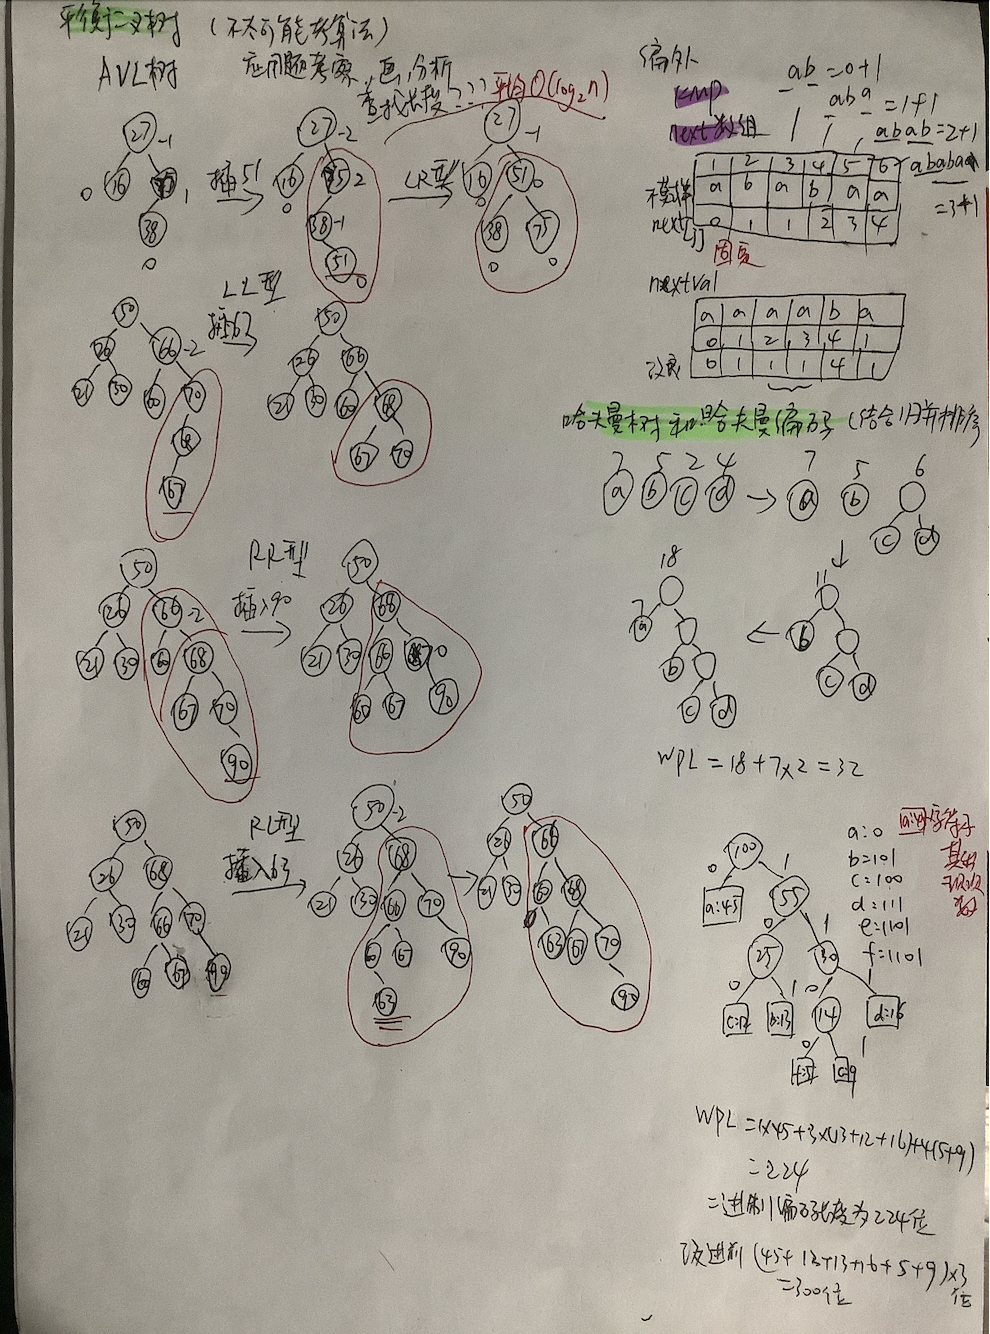 平衡二叉树 (不太可能考算法)
AVL树 应用题考察,画,分析
查找长度??? 平均O(log₂n)
27 -1
0 16 75 1
38
0
插51
27 -2
16 75 2
0 38 -1
51 0
LR型
27 -1
16 51 0
0 38 75
0 0
LL型
插63
50
26 66 -2
21 30 60 70
68
67
50
26 66
21 30 60 68
67 70
RR型
插入90
50
26 66 -2
21 30 60 68
67 70
90
50
26 68
21 30 66 70
60 67 90
RL型
插入63
50
26 68
21 30 66 70
60 67 90
50 -2
26 68
21 30 66 70
60 67 90
63
50
26 66
21 30 60 68
63 67 70
90
编外
KMP
next数组
ab = 0+1
aba = 1+1
abab = 2+1
ababa
= 3+1
1 2 3 4 5 6
模式串 a b a b a a
next[j] 0 1 1 2 3 4
固定
nextval
a a a a b a
0 1 2 3 4 1
改良 0 1 1 1 4 1
哈夫曼树和哈夫曼编码 (结合归并排序
7 5 2 4
a b c d
7 5 6
a b
c d
11
b
c d
18
7
a
b
c d
WPL = 18+7×2 = 32
100
0 1
a:45 55
0 1
25 30
0 1 0 1
c:12 b:13 14 d:16
0 1
f:5 e:9
a:0
b=101
c=100
d=111
e=1101
f=1101
字符
其出现次数
WPL = 1×45+3×(13+12+16)+4(5+9)
= 224
二进制编码长度为224位
改进前 (45+13+13+16+5+9)×3位
= 300位